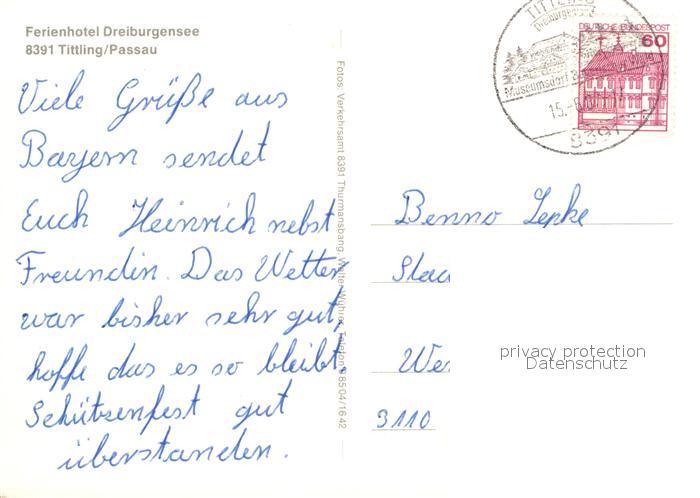 Ferienhotel Dreiburgensee
8391 Tittling/Passau
Viele Grüße aus
Bayern sendet
Euch Heinrich nebst
Freundin. Das Wetter
war bisher sehr gut,
hoffe das es so bleibt.
Schützenfest gut
überstanden.
Fotos: Verkehrsamt 8391 Thurmansbang, Walter Wührer, Telefon 0 85 04/16 42
DEUTSCHE BUNDESPOST
60
Museumsdorf
8391
Benno Lepke
3110
privacy protection
Datenschutz